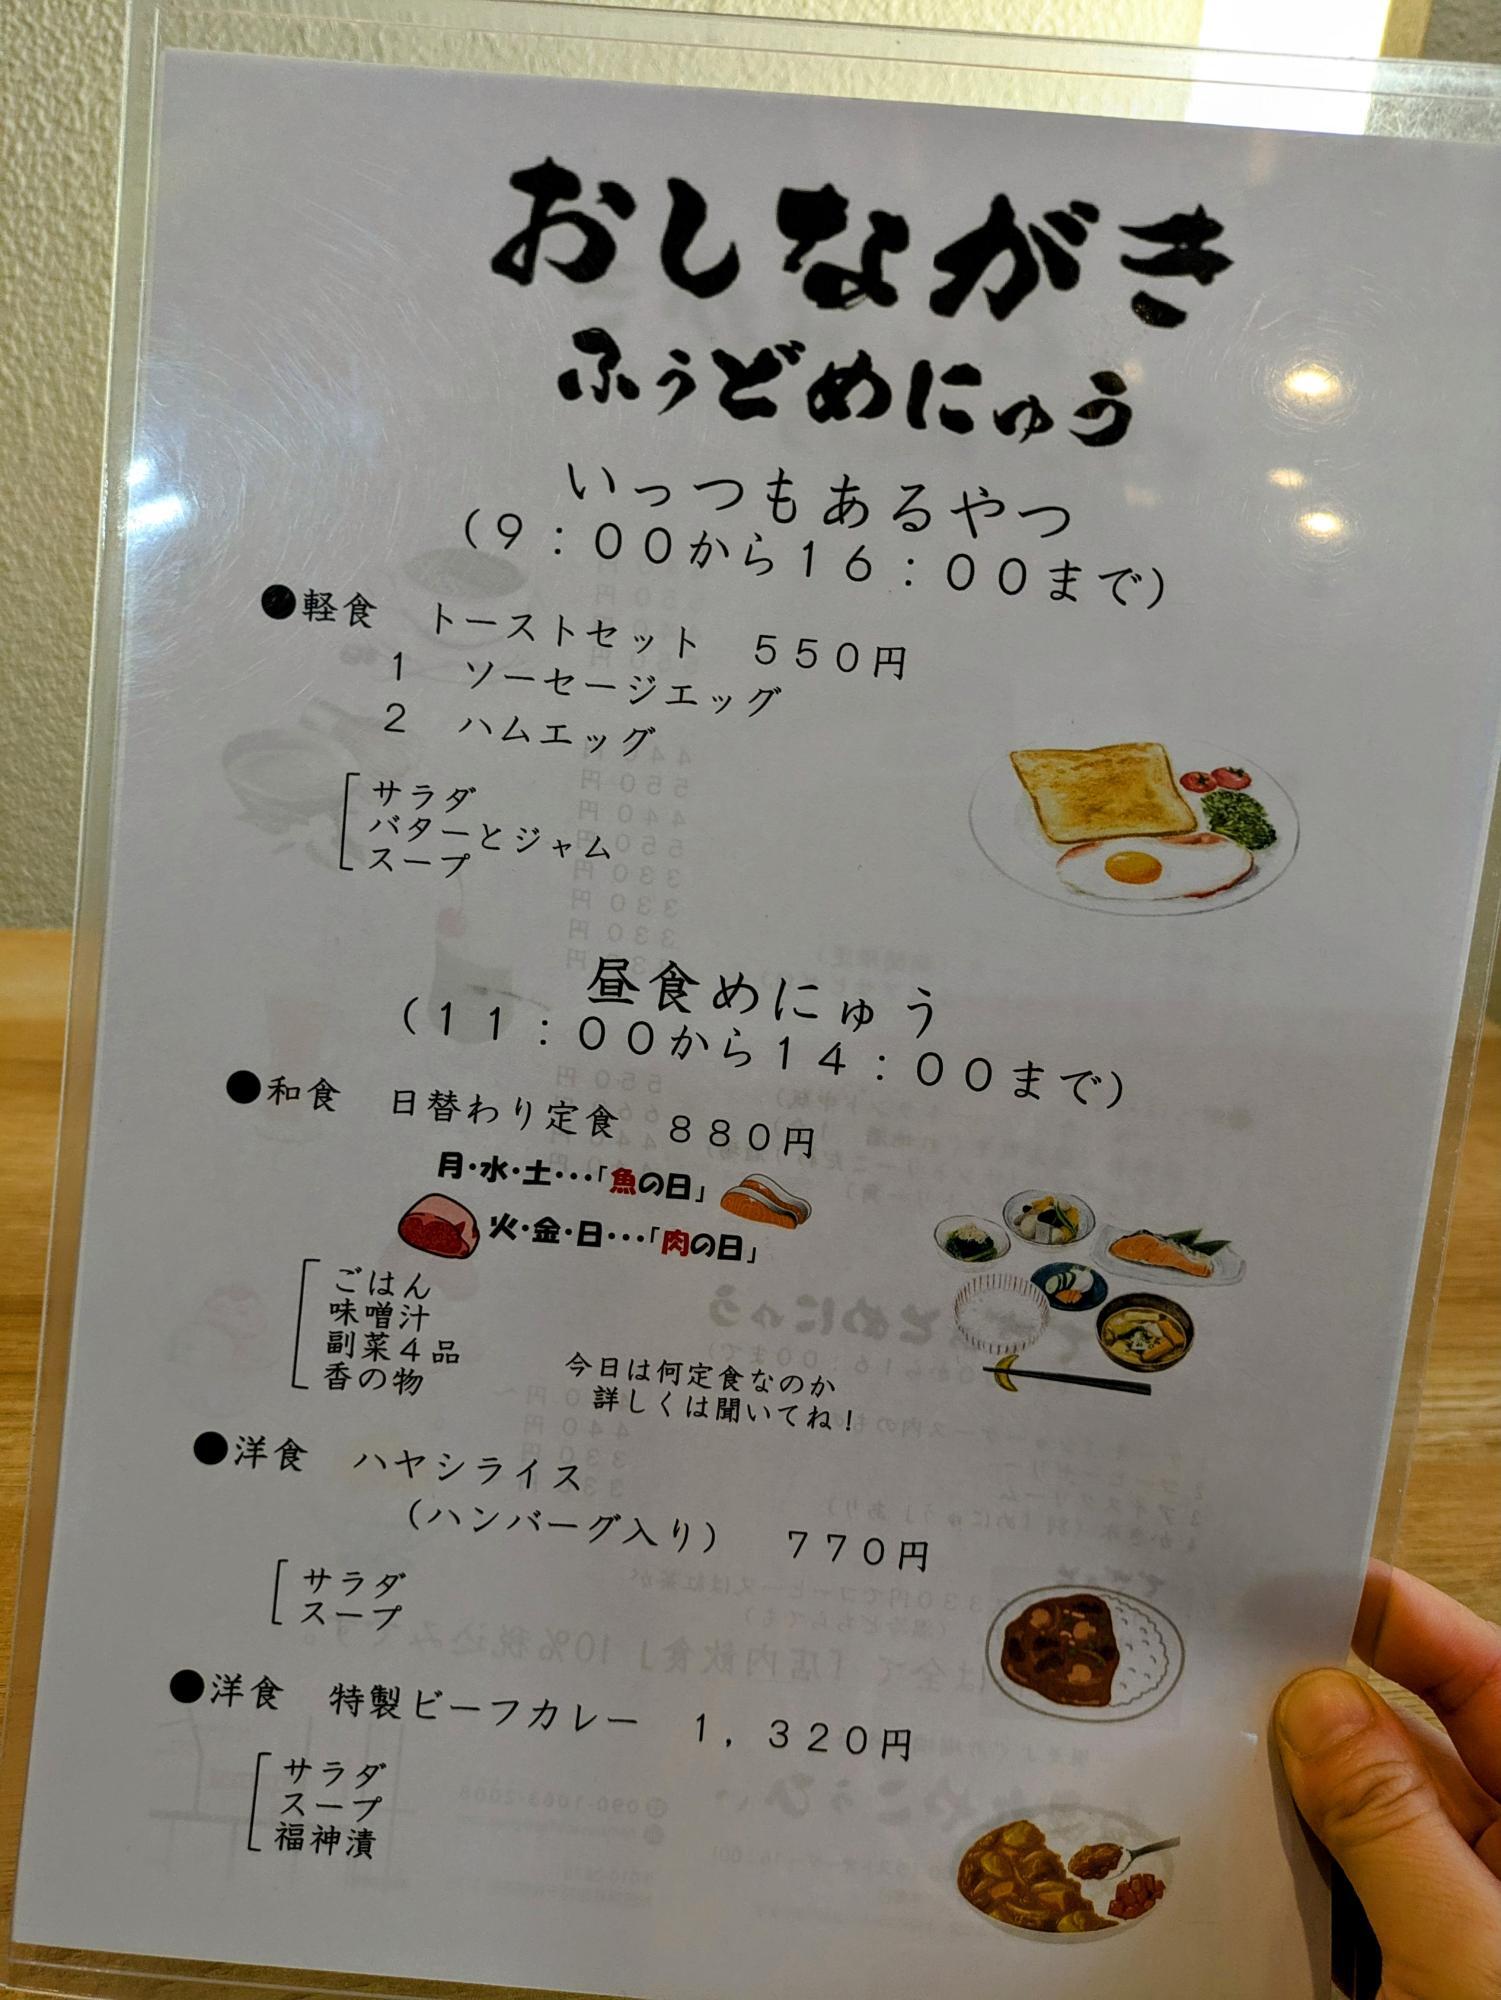 おしながき
ふぅどめにゅう
いっつもあるやつ
(9:00から16:00まで)
●軽食 トーストセット 550円
1 ソーセージエッグ
2 ハムエッグ
サラダ
バターとジャム
スープ
昼食めにゅう
(11:00から14:00まで)
●和食 日替わり定食 880円
月・水・土・・・「魚の日」
火・金・日・・・「肉の日」
ごはん
味噌汁
副菜4品
香の物
今日は何定食なのか
詳しくは聞いてね!
●洋食 ハヤシライス
(ハンバーグ入り) 770円
サラダ
スープ
●洋食 特製ビーフカレー 1,320円
サラダ
スープ
福神漬